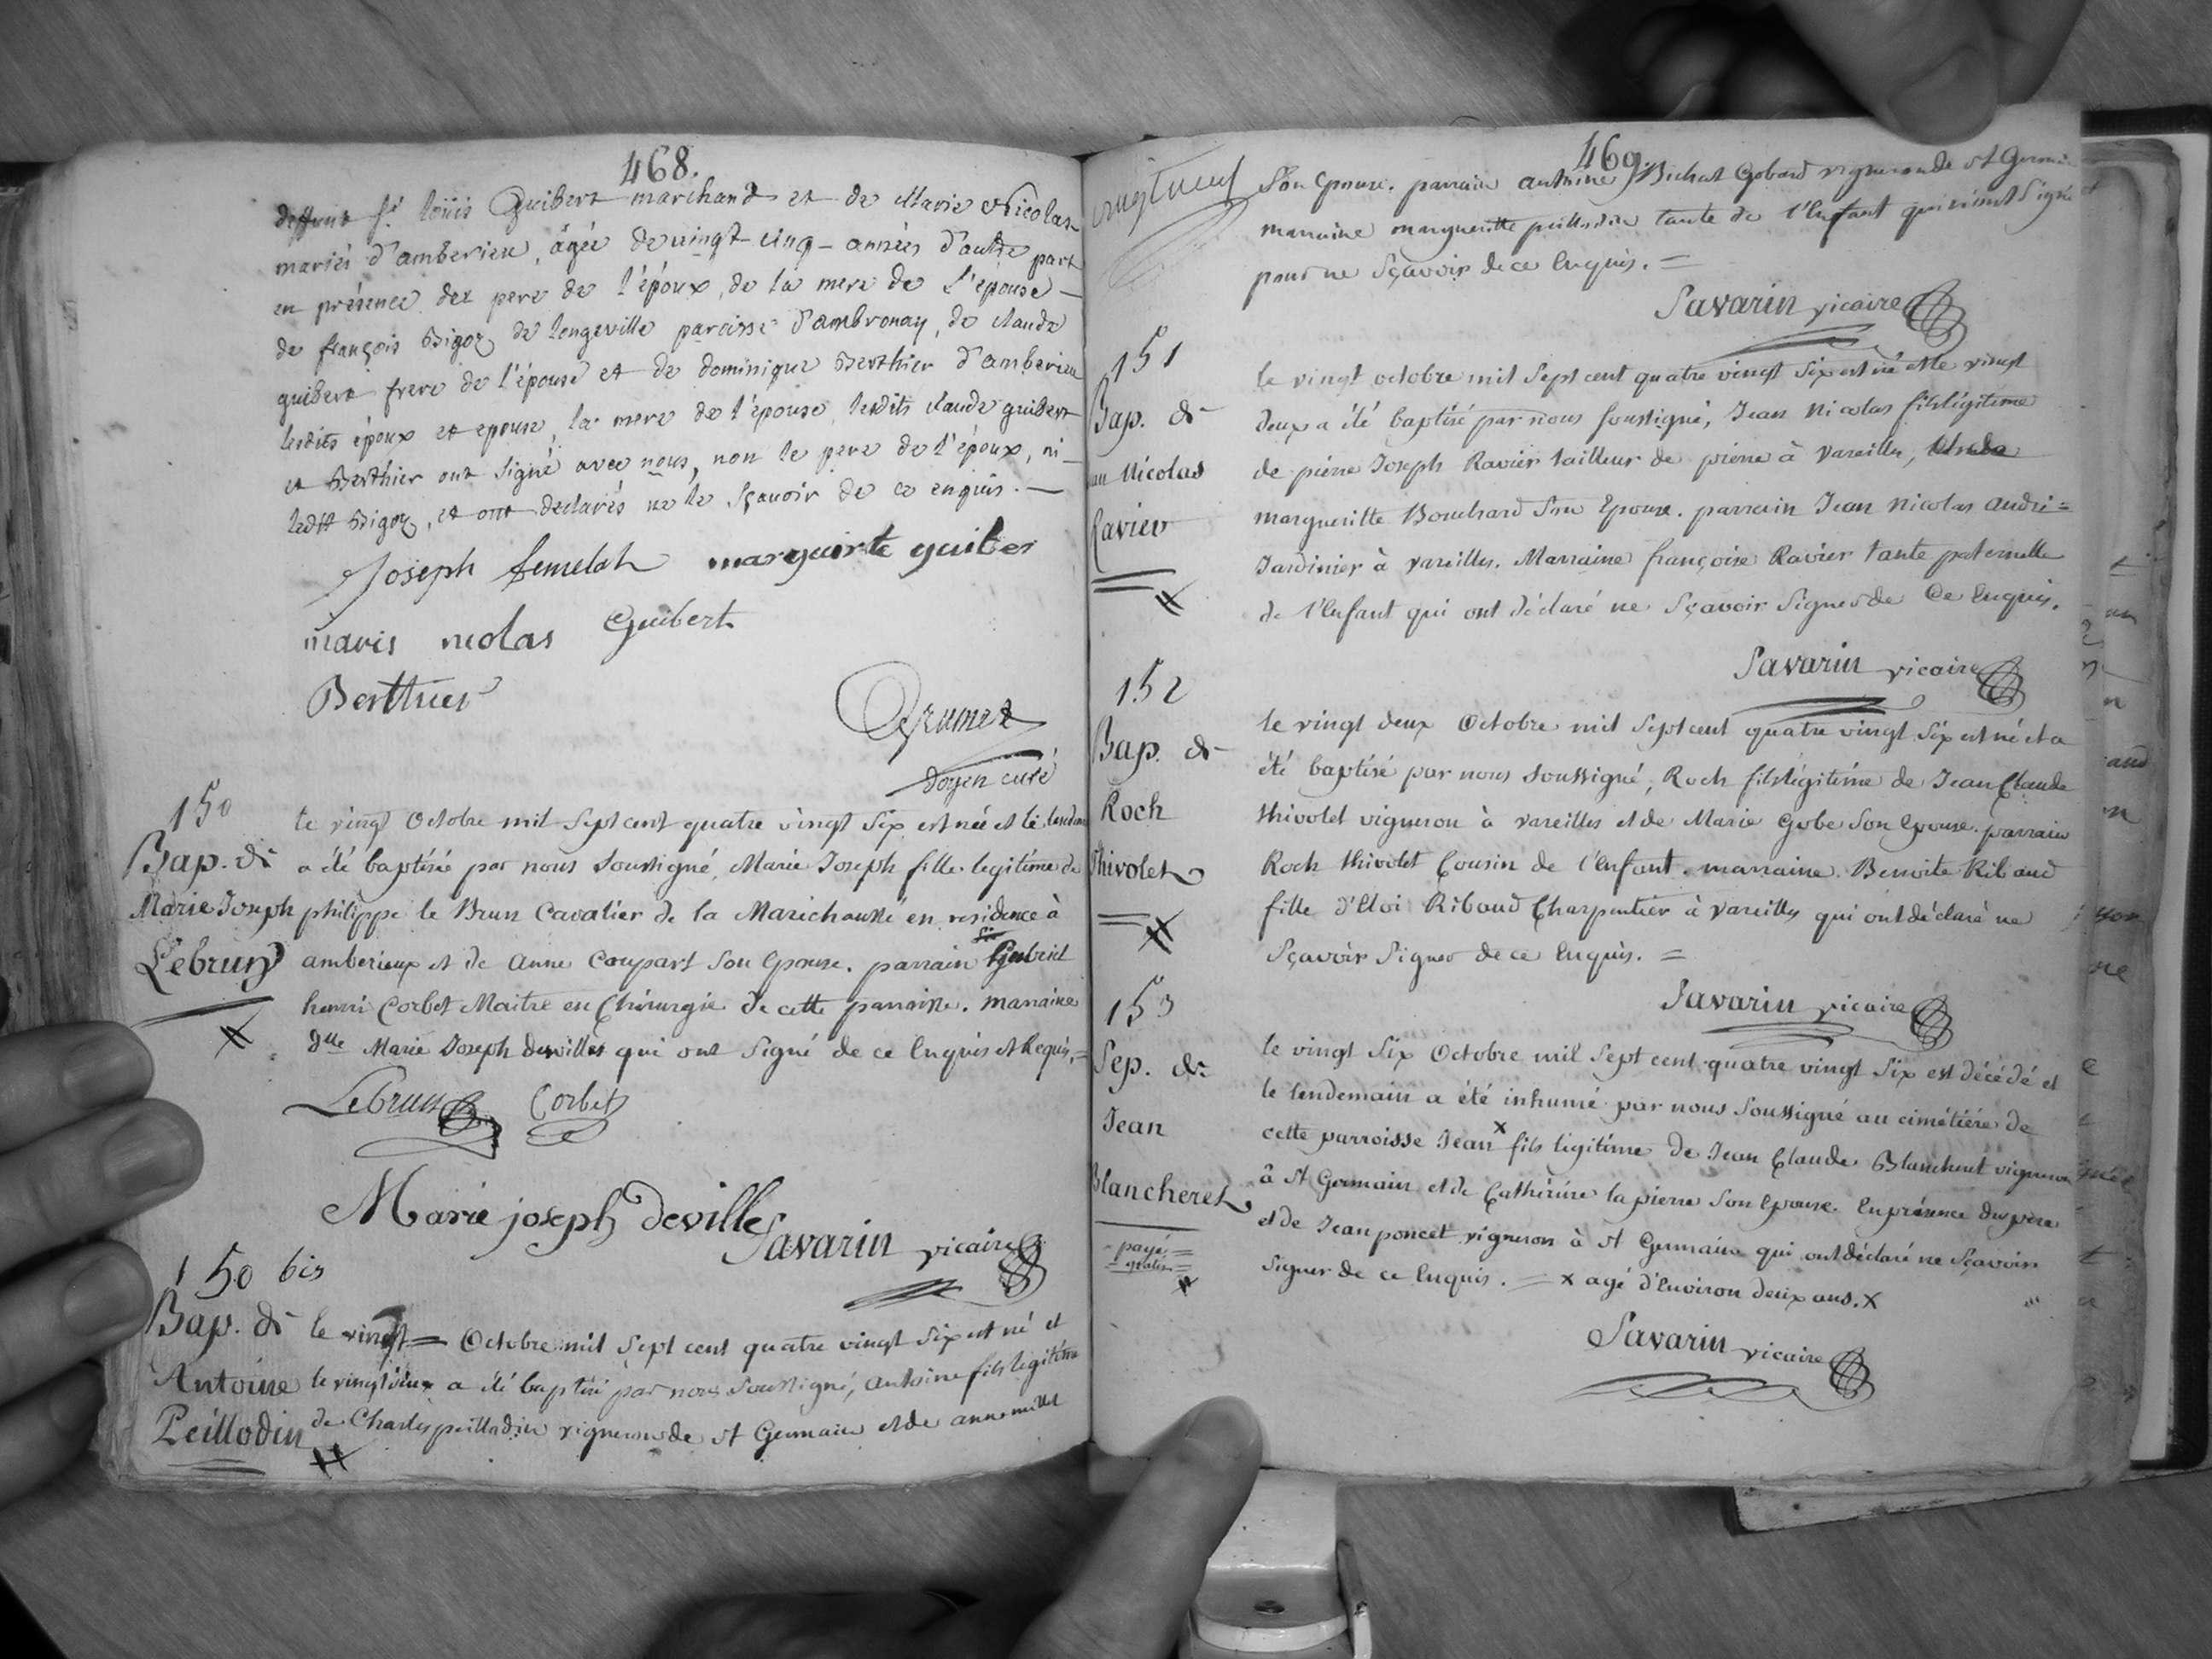 468.
deffunt Sr loüis Guibert marchand et de Marie Nicolas
mariés d'amberieu, âgée de vingt-cinq-années d'autre part
en présence des pere de l'époux, de la mere de l'épouse
de françois Bigoz de longeville paroisse d'ambronay, de claude
guibert frere de l'épouse et de dominique Berthier d'amberieu
lesdits époux et epouse, la mere de l'épouse, lesdits claude guibert
et Berthier ont signé avec nous, non le pere de l'époux, ni
ledit Bigoz, et ont declarés ne le sçavoir de ce enquis.
Joseph marguirte guiber
maris nicolas Guibert
Berthier
doyen curé
150
Bap. de
Marie Joseph
Lebrun
le vingt Octobre mil sept cent quatre vingt six est née et le
a été baptisée par nous soussigné, Marie Joseph fille legitime de
philippe le Brun Cavalier de la Maréchaussé en residence à
amberieux et de anne Coupart son epouse. parrain Gabriel
henri Corbet Maitre en Chirurgie de cette parroisse. marraine
dlle Marie Joseph devilles qui ont signé de ce Enquis et Requis.=
Lebrun Corbet
Marie joseph devilles
Savarin vicaire
150 bis
Bap. de
Antoine
Peillodin
le vingt= Octobre mil sept cent quatre vingt six est né et
le vingt deux a été baptisé par nous soussigné, antoine fils legitime
de Charles peillodin vigneron de st Germain et de anne
469.
vingt neuf
son epouse. parrain antoine Michat Gobard vigneron de st Germain
marraine margueritte peillodin tante de l'Enfant qui n'ont signé
pour ne sçavoir de ce Enquis.=
Savarin vicaire
151
Bap. de
Nicolas
Ravier
le vingt octobre mil sept cent quatre vingt six est né et le vingt
deux a été baptisé par nous soussigné, Jean Nicolas fils légitime
de pierre Joseph Ravier tailleur de pierre à vareilles, et de
margueritte Bouchard son Epouse. parrain Jean Nicolas andri=
Jardinier à vareilles. Marraine françoise Ravier tante paternelle
de l'Enfant qui ont déclaré ne sçavoir signer de Ce Enquis.
Savarin vicaire
152
Bap. de
Roch
Thivolet
le vingt deux Octobre mil sept cent quatre vingt six est né et a
été baptisé par nous soussigné, Roch fils légitime de Jean Claude
thivolet vigneron à vareilles et de Marie Gobe son epouse. parrain
Roch thivolet Cousin de l'Enfant. marraine. Benoite Ribaud
fille d'Eloi Ribaud Charpentier à vareilles qui ont déclaré ne
sçavoir signer de ce Enquis.=
Savarin vicaire
153
Sep. de
Jean
Blancheret
payé=
gratis=
le vingt six Octobre mil sept cent quatre vingt six est décédé et
le lendemain a été inhumé par nous soussigné au cimétière de
cette parroisse Jean x fils légitime de Jean Claude Blancheret vigneron
à st Germain et de Cathérine la pierre son Epouse. En présence du père
et de Jean poncet vigneron à st Germain qui ont déclaré ne sçavoir
signer de ce Enquis.= x agé d'Environ deux ans. x
Savarin vicaire